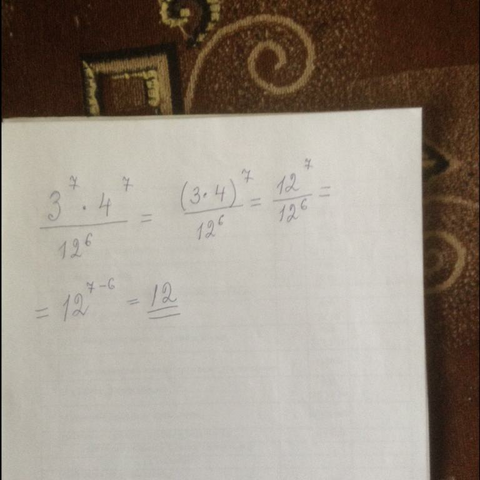 3⁷ · 4⁷ / 12⁶ = (3·4)⁷ / 12⁶ = 12⁷ / 12⁶ =
= 12⁷⁻⁶ = 12